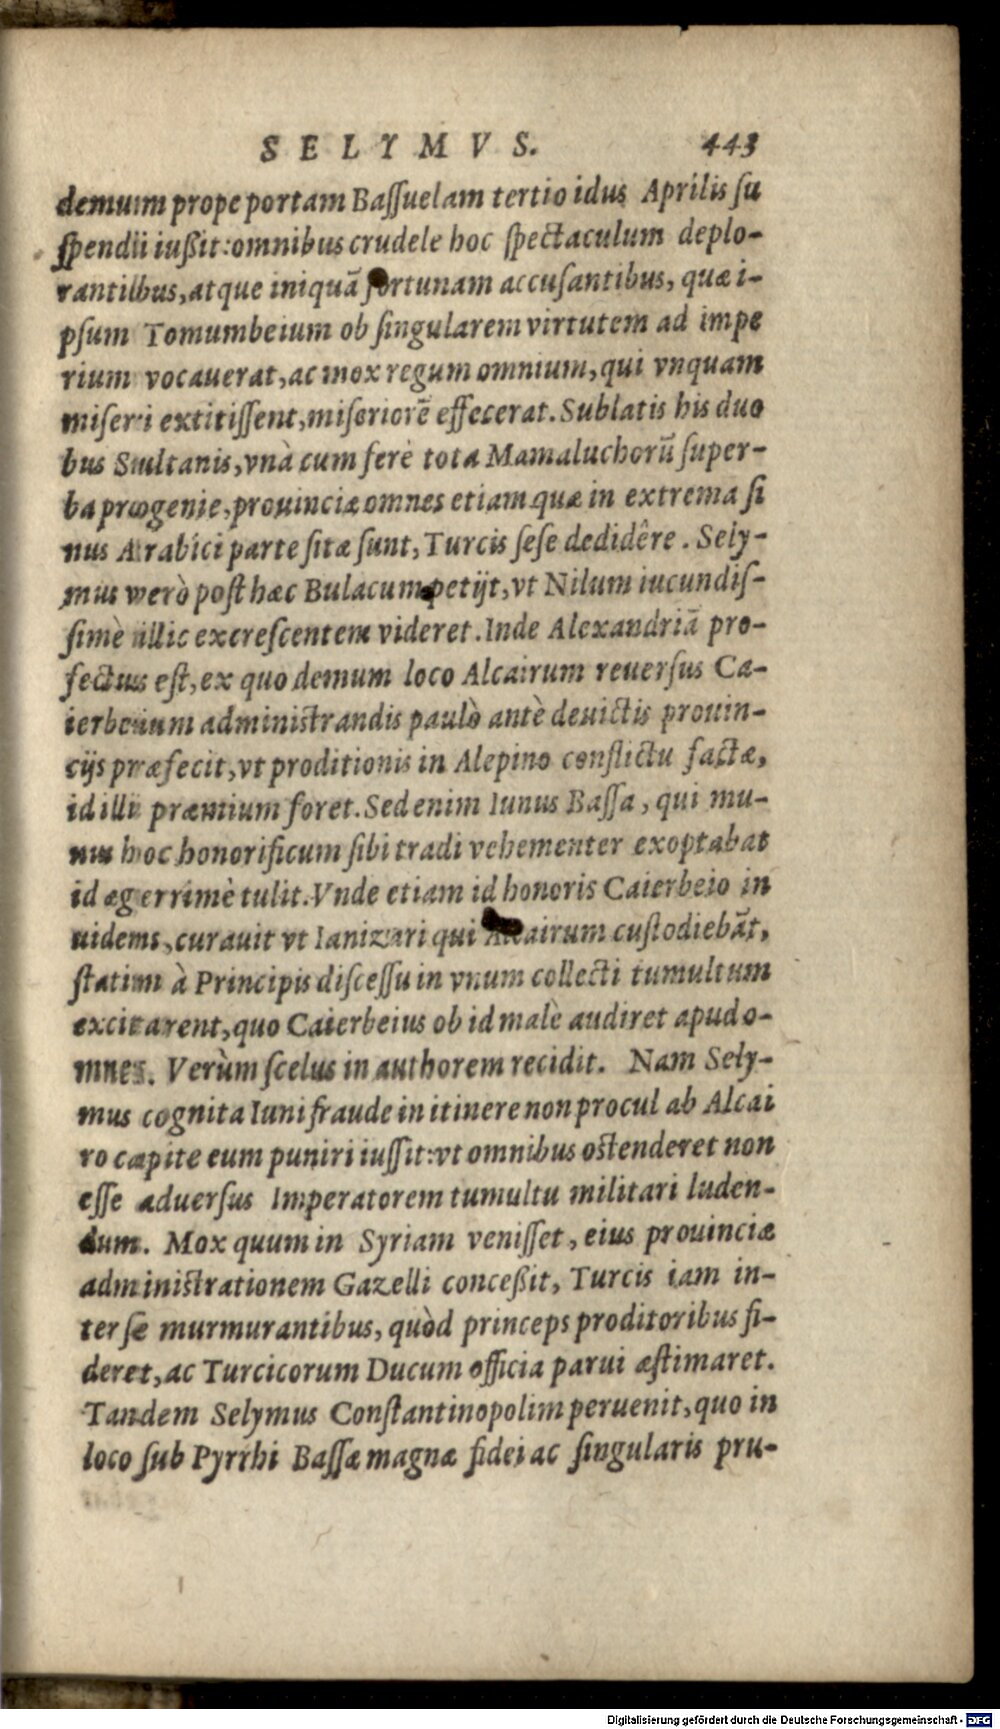 SELYMVS. 443
demum prope portam Baſſuelam tertio idus Aprilis ſu
ſpendii iußit: omnibus crudele hoc ſpectaculum deplo-
rantibus, atque iniquā fortunam accuſantibus, quæ i-
pſum Tomumbeium ob ſingularem virtutem ad impe
rium vocauerat, ac mox regum omnium, qui vnquam
miſeri extitiſſent, miſeriorē effecerat. Sublatis his duo
bus Sultanis, vnà cum ferè tota Mamaluchorū ſuper-
ba progenie, prouinciæ omnes etiam quæ in extrema ſi
nus Arabici parte ſitæ ſunt, Turcis ſeſe dedidêre. Sely-
mus verò poſt hæc Bulacum petijt, vt Nilum iucundiſ-
ſimè illic excreſcentem videret. Inde Alexandriā pro-
fectus eſt, ex quo demum loco Alcairum reuerſus Ca-
ierbeium adminiſtrandis paulò antè deuictis prouin-
cijs præfecit, vt proditionis in Alepino conflictu factæ,
id illi præmium foret. Sed enim Iunus Baſſa, qui mu-
nus hoc honorificum ſibi tradi vehementer exoptabat
id ægerrimè tulit. Vnde etiam id honoris Caierbeio in
uidens, curauit vt Ianizari qui Alcairum cuſtodiebāt,
ſtatim à Principis diſceſſu in vnum collecti tumultum
excitarent, quo Caierbeius ob id malè audiret apud o-
mnes. Verùm ſcelus in authorem recidit. Nam Sely-
mus cognita Iuni fraude in itinere non procul ab Alcai
ro capite eum puniri iuſſit: vt omnibus oſtenderet non
eſſe aduerſus Imperatorem tumultu militari luden-
dum. Mox quum in Syriam veniſſet, eius prouinciæ
adminiſtrationem Gazelli conceßit, Turcis iam in-
ter ſe murmurantibus, quòd princeps proditoribus fi-
deret, ac Turcicorum Ducum officia parui æſtimaret.
Tandem Selymus Conſtantinopolim peruenit, quo in
loco ſub Pyrrhi Baſſæ magnæ fidei ac ſingularis pru-
Digitalisierung gefördert durch die Deutsche Forschungsgemeinschaft - DFG